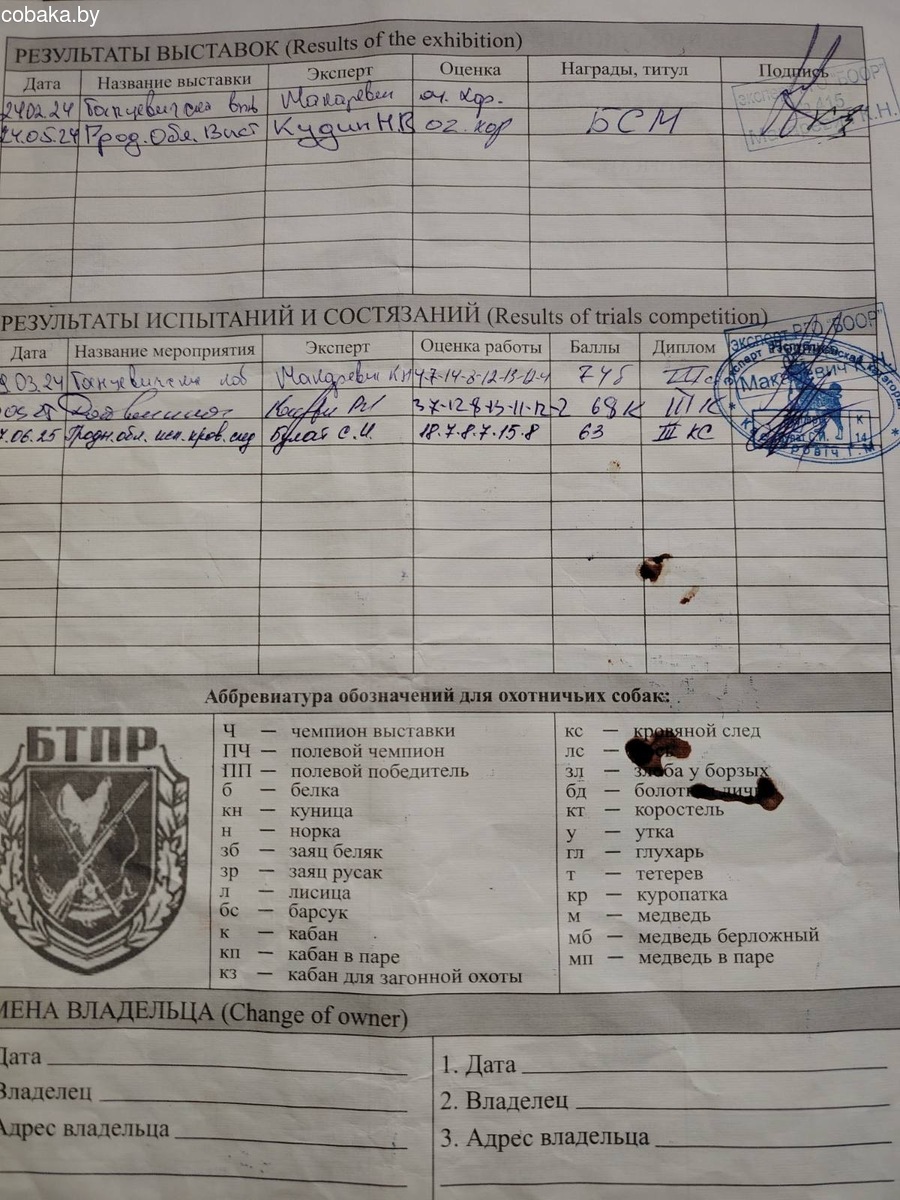 cobaka.by
РЕЗУЛЬТАТЫ ВЫСТАВОК (Results of the exhibition)
Дата Название выставки Эксперт Оценка Награды, титул Подпись
24.02.24 Ганцевичская Макаревич оч. хор.
24.05.24 Грод. Обл. Выст Кудин Н.В оч. хор БСМ
РЕЗУЛЬТАТЫ ИСПЫТАНИЙ И СОСТЯЗАНИЙ (Results of trials competition)
Дата Название мероприятия Эксперт Оценка работы Баллы Диплом
03.24 Макаревич КН 74б III
37-12-8-13-11-12-2 68К III К
7.06.25 Гродн. обл. исп. кров. след Булат С.И. 18.7.8.7.15.8 63 III КС
Эксперт РГО "БООР"
Макаревич К.Н.
Аббревиатура обозначений для охотничьих собак:
БТПР
Ч — чемпион выставки
ПЧ — полевой чемпион
ПП — полевой победитель
б — белка
кн — куница
н — норка
зб — заяц беляк
зр — заяц русак
л — лисица
бс — барсук
к — кабан
кп — кабан в паре
кз — кабан для загонной охоты
кс — кровяной след
лс —
зл — злоба у борзых
бд —
кт — коростель
у — утка
гл — глухарь
т — тетерев
кр — куропатка
м — медведь
мб — медведь берложный
мп — медведь в паре
МЕНА ВЛАДЕЛЬЦА (Change of owner)
Дата
Владелец
Адрес владельца
1. Дата
2. Владелец
3. Адрес владельца